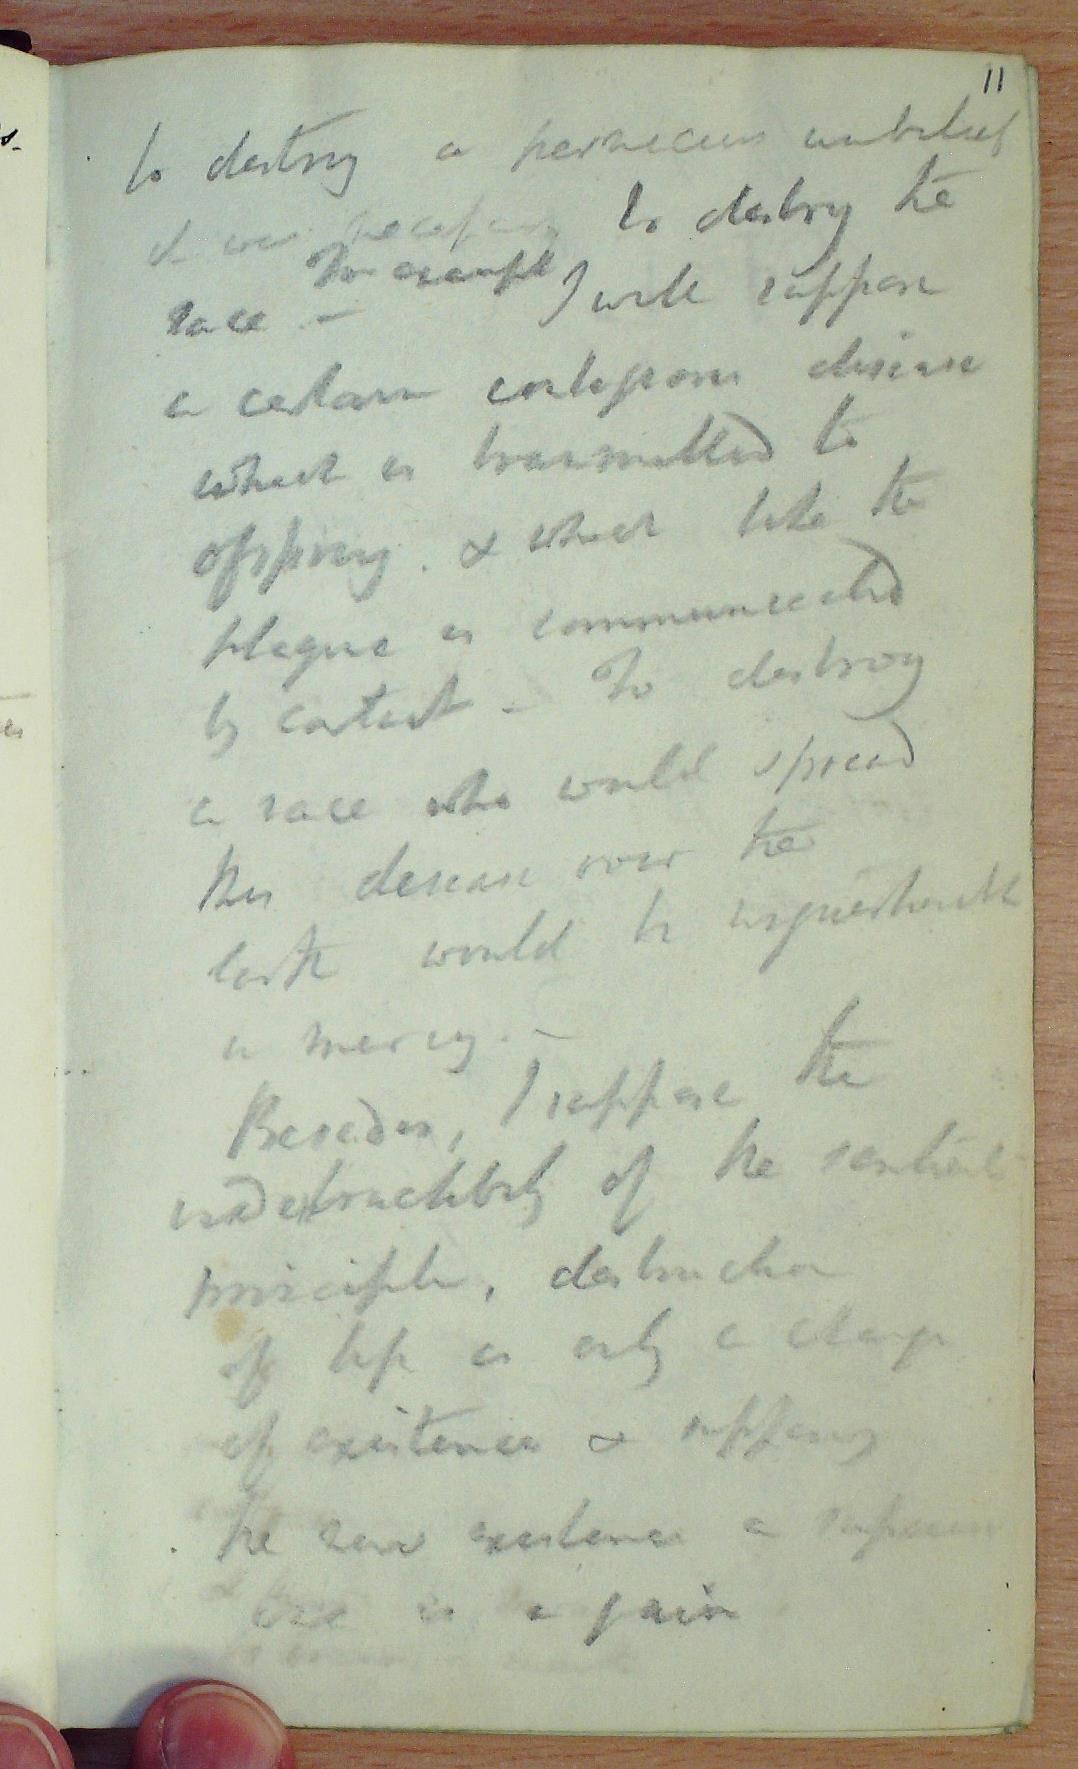 11
to destroy a pernicious unbelief
it was necessary to destroy the
race - For example I will suppose
a certain contagious disease
which is transmitted to
offspring. & which like the
plague is communicated
by contact - To destroy
a race who would spread
this disease over the
earth would be unquestionably
a mercy. -
Besides, I suppose the
indestructibility of the sentient
principle, destruction
of life is only a change
of existence & supposing
the new existence a superior
one is a gain